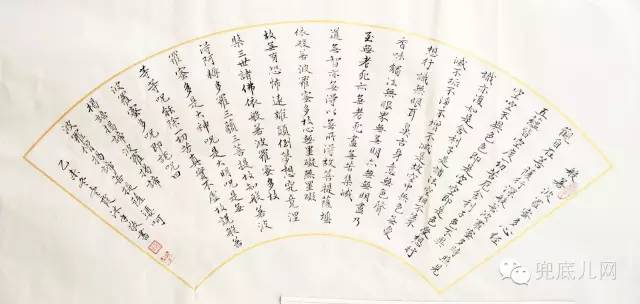 般若波羅蜜多心經
觀自在菩薩行深般若波羅蜜多時照見
五蘊皆空度一切苦厄舍利子色不異
空空不異色色即是空空即是色受想行
識亦復如是舍利子是諸法空相不生不
滅不垢不淨不增不減是故空中無色無受
想行識無眼耳鼻舌身意無色聲
香味觸法無眼界無無明亦無無明盡乃
至無老死亦無老死盡無苦集滅
道無智亦無得以無所得故菩提薩埵
依般若波羅蜜多故心無罣礙無罣礙
故無有恐怖遠離顛倒夢想究竟涅
槃三世諸佛依般若波羅蜜多故
得阿耨多羅三藐三菩提故知般若波
羅蜜多是大神呪是大明呪是無
等等呪能除一切苦真實不虛故說般若
波羅蜜多呪即說呪曰
揭諦揭諦波羅揭諦
波羅僧揭諦菩提薩婆訶
乙未冬書
兜底儿网